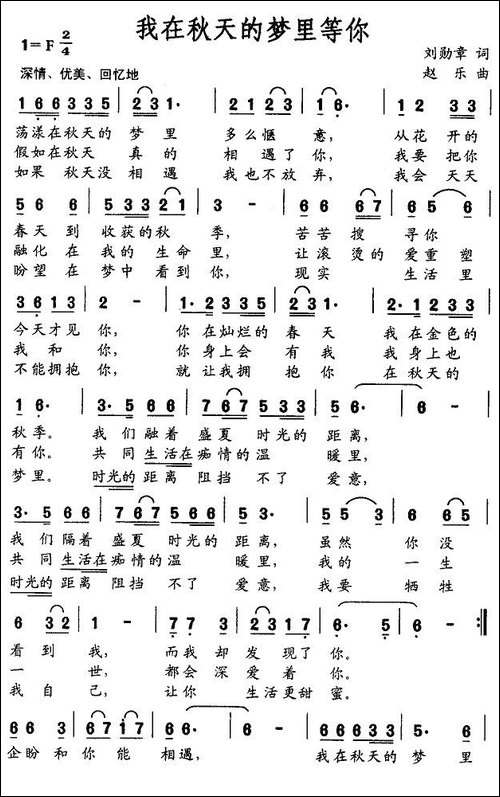 我在秋天的梦里等你
1=F 2/4
刘勋章 词
深情、优美、回忆地
赵 乐 曲
1 6 6 3 3 5 | 2 3 1· | 2 1 2 3 | 1 6· | 1·2 3 3 |
荡漾在秋天的 梦 里 多么惬 意, 从花 开的
假如在秋天 真的 相 遇了 你, 我要 把你
如果 秋天没 相遇 我也不 放弃, 我会 天天
5 6 6 | 5 3 3 2 1 | 3 - | 6 6 6 7 | 6 5 6 |
春天 到 收获的秋 季, 苦苦 搜 寻你
融化 在 我的 生命 里, 让滚 烫的 爱重 塑
盼望 在 梦中 看到 你, 现实 生活里
3 6 1 3 | 2 - | 1· 2 3 3 5 | 2 3 1 | 2· 1 2 3 3 |
今天才见 你, 你 在灿烂的 春 天 我 在金色的
我 和 你, 你 身上会 有 我 我 身上 也
不能拥抱 你, 就 让我拥 抱 你 在 秋天的
1 6· | 3· 5 6 6 | 7 6 7 5 3 3 | 5 6· | 6 - |
秋季。 我 们融着 盛夏 时光的 距离,
有你。 共 同 生活在痴情的温 暖里,
梦里。 时光的 距离 阻挡 不了 爱意,
3· 5 6 6 | 7 6 7 5 6 6 | 5 3· | 5 5 5 | 6 6 3 |
我 们隔着 盛夏 时光的 距离, 虽然 你没
共 同 生活在痴情的温 暖里, 我的 一生
时光的 距离 阻挡 不了 爱意, 我要 牺牲
6 3 2 | 1 - | 7 7 3 | 2 3 1 7 | 6· 5 | 6 - :‖
看 到 我, 而我 却 发 现了 你。
一 世, 都会 深 爱 着 你。
我 自 己, 让你 生活更甜 蜜。
6 6 3 | 6 7 6 1 7 | 6 6· | 6 - | 6 6 6 3 3 | 5· 6 |
企盼 和 你 能 相遇, 我在秋天的 梦 里